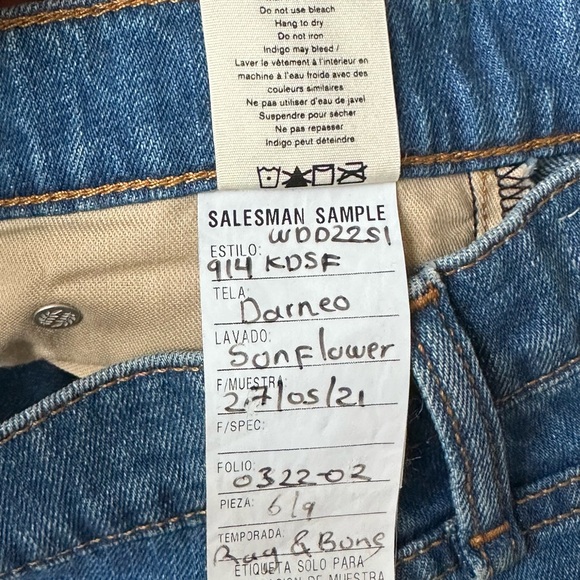 Do not use bleach
Hang to dry
Do not iron
Indigo may bleed /
Laver le vêtement à l'intérieur en
machine à l'eau froide avec des
couleurs similaires
Ne pas utiliser d'eau de javel
Suspendre pour sécher
Ne pas repasser
Indigo peut déteindre
SALESMAN SAMPLE
ESTILO: WDD22S1
914 KDSF
TELA: Darneo
LAVADO:
Sunflower
F/MUESTRA:
27/05/21
F/SPEC:
FOLIO:
0322-02
PIEZA: 6/9
TEMPORADA:
Rag & Bone
ETIQUETA SOLO PARA